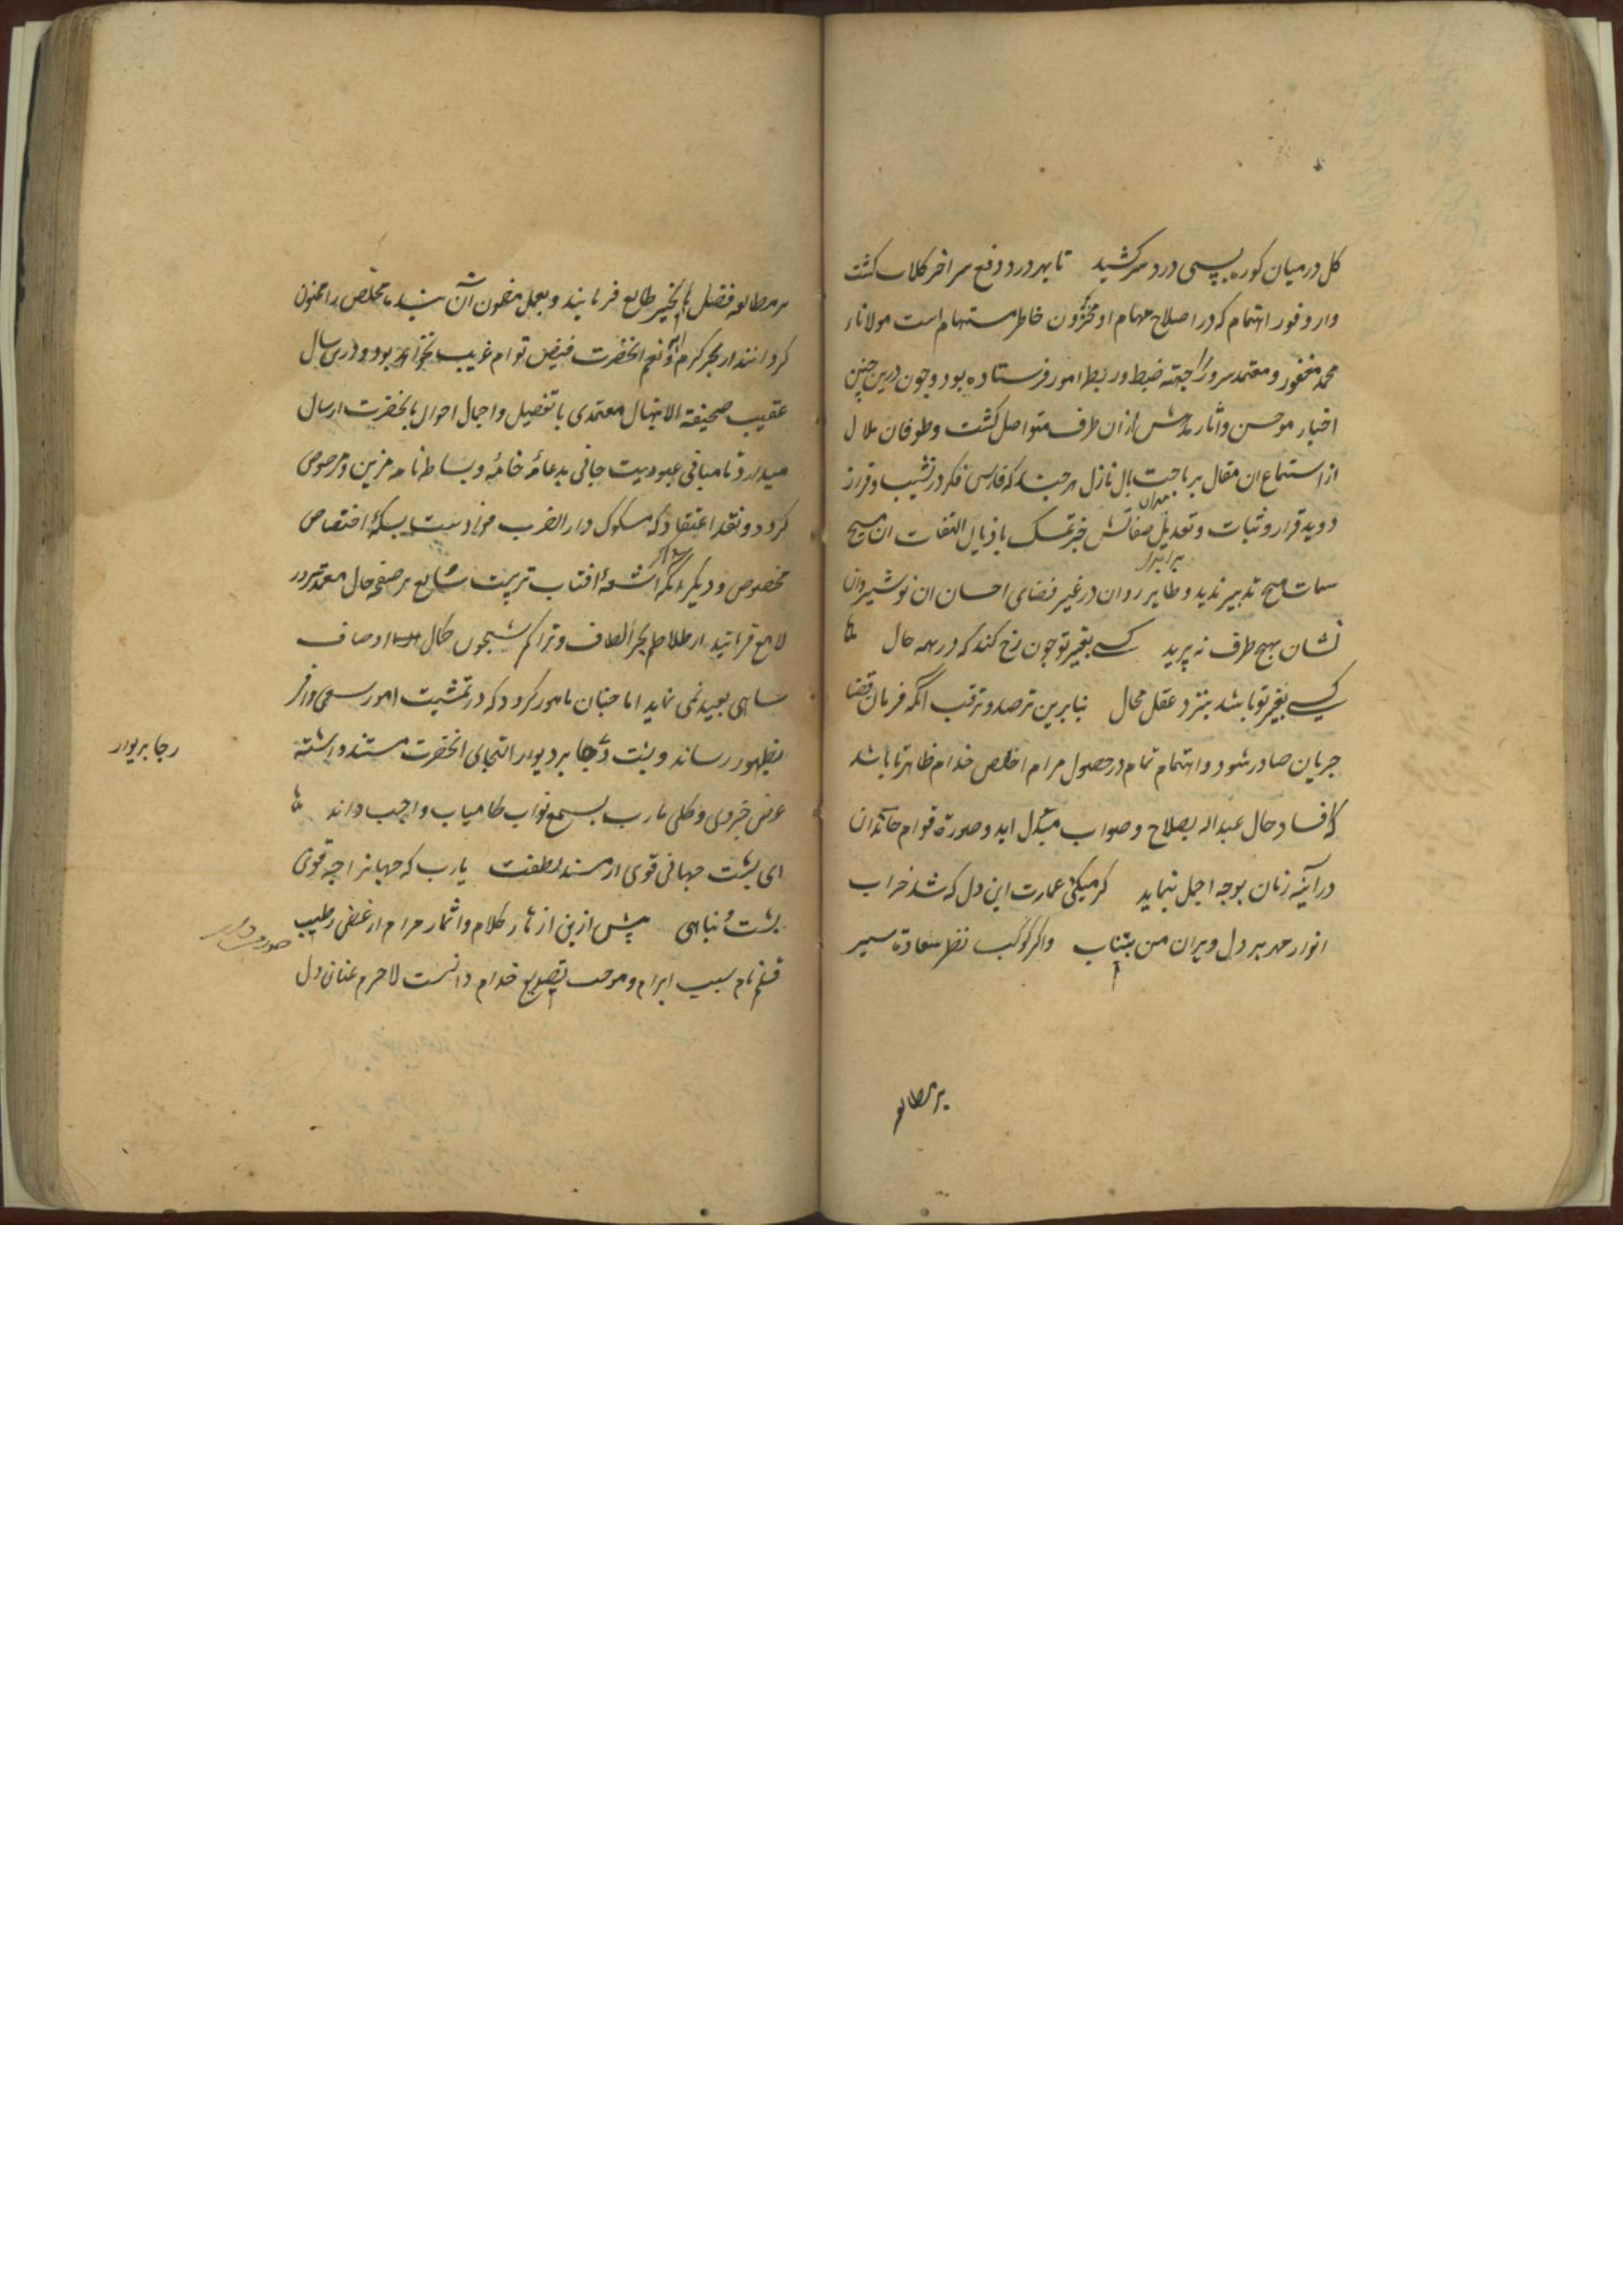 کل در میان کوره بسی درد سر کشید تا بهر درد و دفع سر اخر کلاب کشت
واز وفور اهتمام که در اصلاح مهام او مخزون خاطر مستهام است مولانا
محمد مغفور و معتمد سرور را جهته ضبط و ربط امور فرستاده بود و چون درین چنین
اخبار موحش و اثار از ان طرف متواصل کشت و طوفان ملال
از استماع ان مقال بر ساحت بال نازل هر چند که فارس فکر در نشیب و فراز
دوید قرار و ثبات و تعدیل صفاتش جز تمسک باذیال التفات ان مسیح
سمات هیچ تدبیر ندید و طایر روان در غیر فضای احسان ان نوشیروان
نشان بهیچ طرف نه پرید کسی بغیر تو چون رخ کند که در همه حال
کسی بغیر تو باشد بنزد عقل محال بنابرین ترصد و ترقب انکه فرمان قضا
جریان صادر شود و اهتمام تمام در حصول مرام اخلص خدام ظاهر تا باشد
که فساد حال عبداله بصلاح و صواب مبدل اید و صورة قوام خاندان
در آینه زمان بوجه اجمل نماید کر میکنی عمارت این دل که شد خراب
انوار مهر بر دل ویران من بتاب و اکر کوکب نظر سعادة سیر
بر مطالعه
بر مطالعه فضل بالخیر طالع فرمایند و بعمل مضمون آن مخلص را ممنون
کردانند از بحر کرم و نعم انحضرت فیض توام غریب نخواهد بود و درین سال
عقیب صحیفة الابتهال معتمدی با تفصیل و اجمال احوال بانحضرت ارسال
میدارد تا مبانی عبودیت جانی بدعامهٔ خامه و بساط نامه مزین و مرصوص
کردد و نقد اعتقاد که مسکوک دار الضرب فوادست بسکهٔ اختصاص
مخصوص و دیکر انکه اشعهٔ افتاب تربیت شایع بر صفحه حال معتمد سرور
لامع فرمایند از تلاطم بحر الطاف و تراکم کمال اوصاف
شاهی بعید نمی نماید اما چنان مامور کردد که در تمشیت امور سعی وافر
بظهور رساند و پشت رجا بر دیوار التجای انحضرت مستند داشته
رجا بر دیوار
عرض جزوی و کلی مارب بسمع نواب کامیاب واجب داند
ای پشت جهانی قوی از مسند لطفت یارب که جهانرا چه قوی
پشت و پناهی پیش ازین ازهار کلام و اثمار مرام از غصن رطیب
قلم نام سبب ابرام و موجب تصدیع خدام دانست لاجرم عنان دل